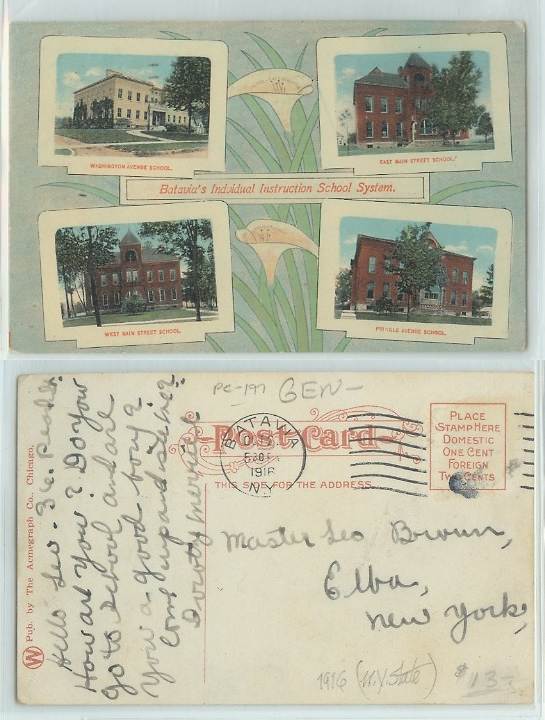 WASHINGTON AVENUE SCHOOL.
EAST MAIN STREET SCHOOL.
Batavia's Individual Instruction School System.
WEST MAIN STREET SCHOOL.
PRINGLE AVENUE SCHOOL.
PC-197 GEN-
Post Card
THIS SIDE FOR THE ADDRESS
BATAVIA
1916
N.Y.
PLACE
STAMP HERE
DOMESTIC
ONE CENT
FOREIGN
TWO CENTS
Hello Leo.
How are you? Do you
go to school and are
you a good boy?
Come up and see us?
Dorothy
Master Leo Brown,
Elba,
New York,
Pub. by The Acmegraph Co., Chicago.
W
1916 (N.Y. State) $13-